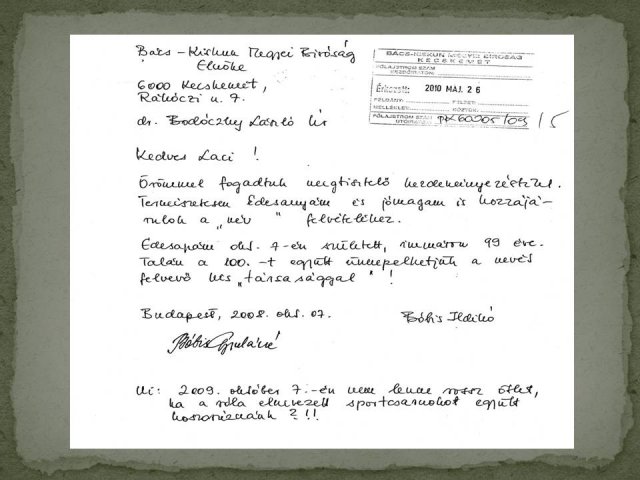 Bács-Kiskun Megyei Bíróság
Elnöke
6000 Kecskemét,
Rákóczi u. 7.
dr. Bodóczky László Úr
BÁCS-KISKUN MEGYEI BÍRÓSÁG
KECSKEMÉT
FŐLAJSTROM SZÁM
KEZDŐIRATON:
Érkezett: 2010 MÁJ. 26
PÉLDÁNY: FÜZET:
MELLÉKLET: KÖZTÜK:
FŐLAJSTROM SZÁM
UTÓIRATON: 60905/09 / 5
Kedves Laci!
Örömmel fogadtuk megtisztelő kezdeményezéstüket.
Természetesen Édesanyám és jómagam is hozzájá-
rulok a „név" felvételéhez.
Édesapám okt. 7-én született, immáron 99 éve.
Talán a 100.-t együtt ünnepelhetjük a nevét
felvevő kis „társasággal"!
Budapest, 2008. okt. 07.
Bóbis Ildikó
Bóbis Gyuláné
Ui: 2009. október 7.-én nem lenne rossz ötlet,
ha a róla elnevezett sportcsarnokot együtt
koszorúznánk?!!